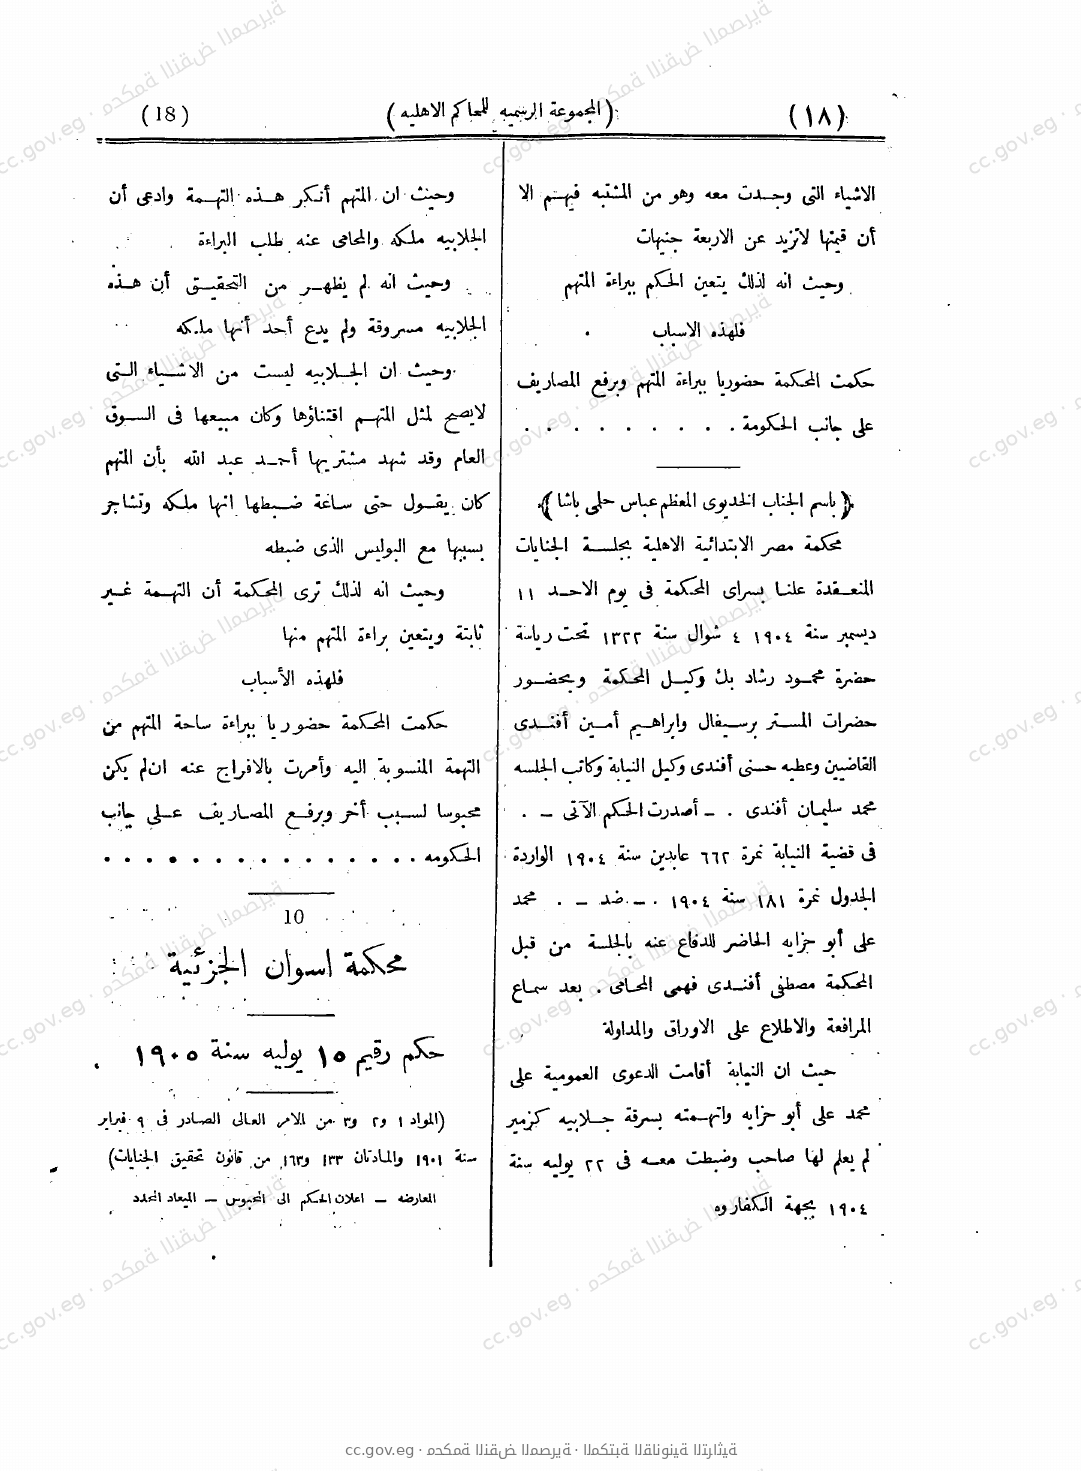 (١٨)
(المجموعة الرسميه للمحاكم الاهليه)
(18)
الاشياء التى وجدت معه وهو من المشتبه فيهم الا
أن قيمتها لاتزيد عن الاربعة جنيهات
وحيث انه لذلك يتعين الحكم ببراءة المتهم
فلهذه الاسباب
حكمت المحكمة حضوريا ببراءة المتهم وبرفع المصاريف
على جانب الحكومة . . . . . . . . .
﴿باسم الجناب الخديوى المعظم عباس حلمى باشا﴾
محكمة مصر الابتدائية الاهلية بجلسة الجنايات
المنعقدة علنا بسراى المحكمة فى يوم الاحد ١١
ديسمبر سنة ١٩٠٤ ٤ شوال سنة ١٣٢٢ تحت رياسة
حضرة محمود رشاد بك وكيل المحكمة وبحضور
حضرات المستر برسيفال وابراهيم أمين أفندى
القاضيين وعطيه حسنى أفندى وكيل النيابة وكاتب الجلسه
محمد سليمان أفندى . – أصدرت الحكم الآتى – .
فى قضية النيابة نمرة ٦٦٢ عابدين سنة ١٩٠٤ الواردة
الجدول نمرة ١٨١ سنة ١٩٠٤ . – ضد – . محمد
على أبو حزايه الحاضر للدفاع عنه بالجلسة من قبل
المحكمة مصطفى أفندى فهمى المحامى . بعد سماع
المرافعة والاطلاع على الاوراق والمداولة
حيث ان النيابة أقامت الدعوى العمومية على
محمد على أبو حزايه واتهمته بسرقة جلابيه كزمير
لم يعلم لها صاحب وضبطت معه فى ٢٢ يوليه سنة
١٩٠٤ بجهة الكفاروه
وحيث ان المتهم أنكر هذه التهمة وادعى أن
الجلابيه ملكه والمحامى عنه طلب البراءة
وحيث انه لم يظهر من التحقيق أن هذه
الجلابيه مسروقة ولم يدع أحد أنها ملكه
وحيث ان الجلابيه ليست من الاشياء التى
لايصح لمثل المتهم اقتناؤها وكان مبيعها فى السوق
العام وقد شهد مشتريها أحمد عبد الله بأن المتهم
كان يقول حتى ساعة ضبطها انها ملكه وتشاجر
بسببها مع البوليس الذى ضبطه
وحيث انه لذلك ترى المحكمة أن التهمة غير
ثابتة ويتعين براءة المتهم منها
فلهذه الأسباب
حكمت المحكمة حضوريا ببراءة ساحة المتهم من
التهمة المنسوبة اليه وأمرت بالافراج عنه ان لم يكن
محبوسا لسبب أخر وبرفع المصاريف على جانب
الحكومه . . . . . . . . . . . . . .
10
محكمة اسوان الجزئية
حكم رقيم ١٥ يوليه سنة ١٩٠٥
(المواد ١ و٢ و٣ من الامر العالى الصادر فى ٩ فبراير
سنة ١٩٠١ والمادتان ١٣٣ و١٦٣ من قانون تحقيق الجنايات)
المعارضه – اعلان الحكم الى المحبوس – الميعاد المحدد
cc.gov.eg · محكمة النقض المصرية · المكتبة القانونية التراثية